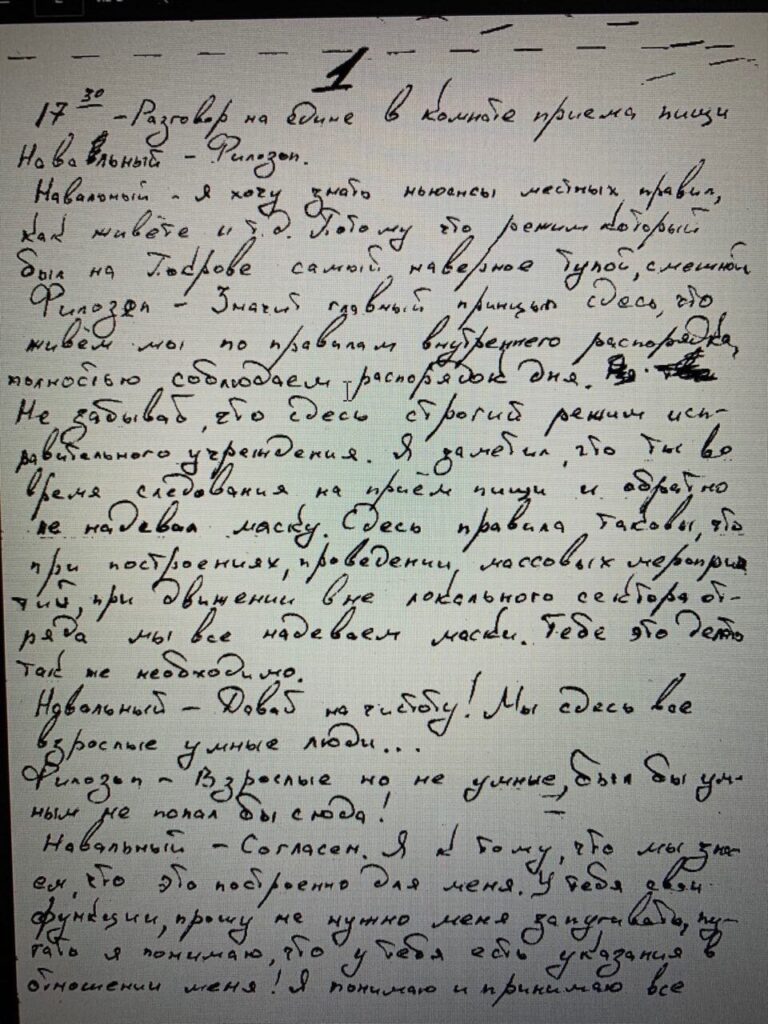 1
17 30 - Разговор на едине в комнате приема пищи
Навальный - Филозоп.
Навальный - я хочу знать ньюансы местных правил,
как живёте и т.д. Потому что режим который
был на Покрове самый, наверное тупой, смешной
Филозоп - Значит главный принцып сдесь, что
живём мы по правилам внутреннего распорядка,
полностью соблюдаем распорядок дня.
Не забывай, что сдесь строгий режим исп-
равительного учреждения. Я заметил, что ты во
время следования на приём пищи и обратно
не надевал маску. Сдесь правила таковы, что
при построениях, проведении, массовых мероприя
тий, при движении вне локального сектора от-
ряда мы все надеваем маски. Тебе это
так же необходимо.
Навальный - Давай на чистоту! Мы сдесь все
взрослые умные люди...
Филозоп - Взрослые но не умные, был бы ум-
ным не попал бы сюда!
Навальный - Согласен. Я к тому, что мы зна-
ем, что это построенно для меня. У тебя свои
функции, прошу не нужно меня запугивать, пу-
гать я понимаю, что у тебя есть указания в
отношении меня! Я понимаю и принимаю все